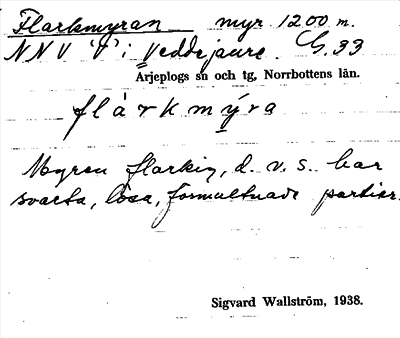 Flarkmyran myr 1200 m.
NNV 'V' i Veddejaure. G. 33
Arjeplogs sn och tg, Norrbottens län.
flárkmýra
Myren flarkig, d. v. s. har
svarta, lösa, förmultnade partier.
Sigvard Wallström, 1938.